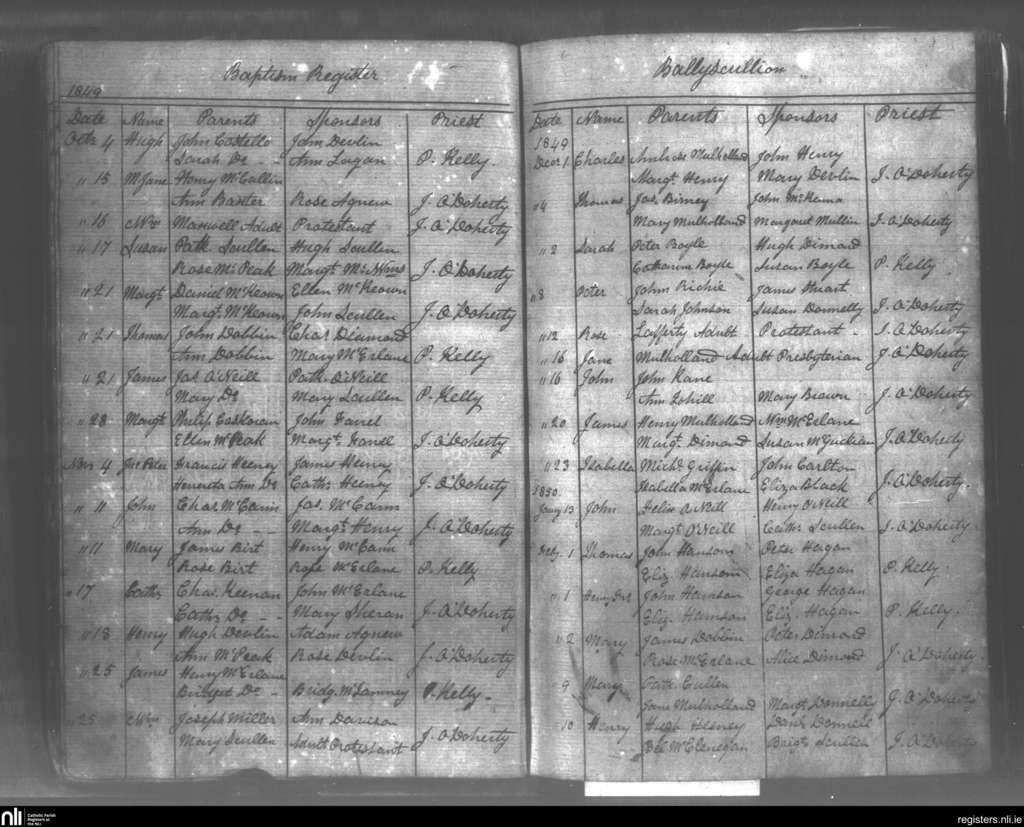 Baptism Register
1849
Date Name Parents Sponsors Priest
Octr 4 Hugh John Costello John Devlin
Sarah Do - - Ann Logan P. Kelly.
" 15 M Jane Henry McCallin
Ann Baxter Rose Agnew J. O'Doherty
" 16 Wm Maxwell Adult Protestant J. O'Doherty
" 17 Susan Patk Scullen Hugh Scullen
Rose McPeak Margt. J. O'Doherty
" 21 Margt Daniel McKeown Ellen McKeown
Margt. McKeown John Scullen J. O'Doherty
" 21 Thomas John Dobbin Chas Diamond
Ann Dobbin Mary McErlane P. Kelly
" 21 James Jas O'Neill Patk O'Neill
Mary Do Mary Scullen P. Kelly
" 28 Margt Philip John
Ellen McPeak Margt. J. O'Doherty
Novr 4 Peter Francis Heeney James Henry
Henereta Ann Do Cathr Heeney J. O'Doherty
" 11 John Chas McCann Jas. McCann
Ann Do Margt Henry J. O'Doherty
" 11 Mary James Birt Henry McCann
Rose Birt Rose McErlane P. Kelly
" 17 Cathr Chas. Keenan John McErlane
Cathr Do - - Mary J. O'Doherty
" 18 Henry Hugh Devlin Adam Agnew
Ann McPeak Rose Devlin J. O'Doherty
" 25 James Henry McErlane
Bridget Do - Bridg. P. Kelly -
" 25 Wm Joseph Miller Ann Davison
Mary Scullen Adult Protestant J. O'Doherty
Ballyscullion
Date Name Parents Sponsors Priest
1849
Decr 1 Charles Ambrose Mulholland John Henry
Margt. Henry Mary Devlin J. O'Doherty
" 4 Thomas Jas. Birney John McKenna
Mary Mulholland Margaret Mullin J. O'Doherty
" 2 Sarah Peter Boyle Hugh Dimond
Catharine Boyle Susan Boyle P. Kelly
" 8 Peter John Richie James Stuart
Sarah Johnson Susan Donnelly J. O'Doherty
" 12 Rose Lafferty Adult Protestant - J. O'Doherty
" 16 Jane Mulholland Adult Presbyterian J. O'Doherty
" 16 John John Kane
Ann Mary Brown J. O'Doherty
" 20 James Henry Mulholland Wm McErlane
Margt. Dimond Susan McGuickian J. O'Doherty
" 23 Isabella Michl Griffin John Carlton
Isabella McErlane Eliza Black J. O'Doherty.
1850.
Jany 13 John Felix O'Neill Henry O'Neill
Margt O'Neill Cathr Scullen J. O'Doherty
Feby. 1 Thomas John Hanson Peter Hagan
Eliz. Hanson Eliza Hagan P. Kelly
" 1 Henry John Hanson George Hagan
Eliz. Hanson Eliz. Hagan P. Kelly.
" 2 Mary James Dobbin Peter Dimond
Rose McErlane Alice Dimond J. O'Doherty
9 Mary Patk. Cullen
Jane Mulholland Margt Donnelly J. O'Doherty
10 Henry Hugh Danl. Donnell
McClenegan Bridgt Scullen J. O'Doherty
nli
Catholic Parish
Registers at
the NLI
registers.nli.ie